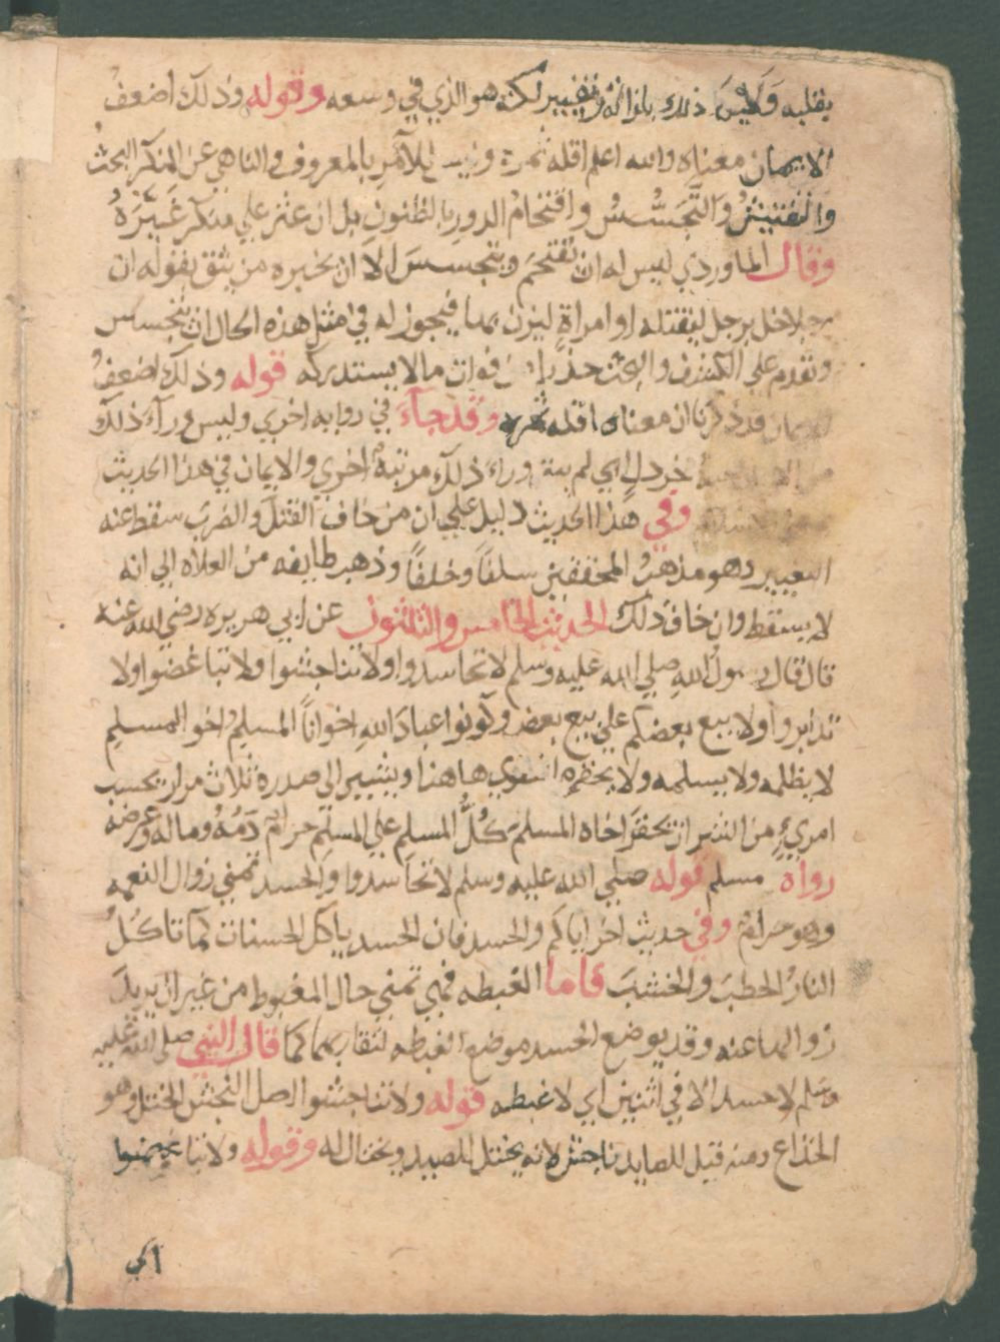 بقلبه وليس ذلك بازالة وتغيير لكنه هو الذي في وسعه وقوله وذلك اضعف
الايمان معناه والله اعلم اقله ثمرة وليس للآمر بالمعروف والناهي عن المنكر البحث
والتفتيش والتجسس واقتحام الدور بالظنون بل ان عثر علي منكر غيره
وقال الماوردي ليس له ان يقتحم ويتجسس الا ان يخبره من يثق بقوله ان
رجلا خلا برجل ليقتله او امراة ليزني بها فيجوز له في مثل هذه الحال ان يتجسس
ويقدم علي الكشف والبحث حذرا من فوات ما لا يستدركه قوله وذلك اضعف
الايمان قد ذكرنا ان معناه اقله ثمره وقد جاء في رواية اخري وليس ورآء ذلك
من الايمان حبة خردل اي لم يبق وراء ذلك مرتبة اخري والايمان في هذا الحديث
بمعني الاسلام وفي هذا الحديث دليل علي ان من خاف القتل والضرب سقط عنه
التغيير وهو مذهب المحققين سلفا وخلفا وذهب طايفه من الغلاه الي انه
لا يسقط وان خاف ذلك الحديث الخامس والثلثون عن ابي هريره رضي الله عنه
قال قال رسول الله صلي الله عليه وسلم لا تحاسدوا ولا تناجشوا ولا تباغضوا ولا
تدابروا ولا يبع بعضكم علي بيع بعض وكونوا عباد الله اخوانا المسلم اخو المسلم
لا يظلمه ولا يسلمه ولا يحقره التقوي هاهنا ويشير الي صدره ثلاث مرار بحسب
امريء من الشر ان يحقر اخاه المسلم كل المسلم علي المسلم حرام دمه وماله وعرضه
رواه مسلم قوله صلي الله عليه وسلم لا تحاسدوا والحسد تمني زوال النعمه
وهو حرام وفي حديث اخر اياكم والحسد فان الحسد ياكل الحسنات كما تاكل
النار الحطب والخشب فاما الغبطه فهي تمني حال المغبوط من غير ان يريد
زوالها عنه وقد يوضع الحسد موضع الغبطه لتقاربهما كما قال النبي صلي الله عليه
وسلم لا حسد الا في اثنين اي لا غبطه قوله ولا تناجشوا اصل النجش الختل وهو
الخداع ومنه قيل للصايد ناجش لانه يختل الصيد ويحتال له وقوله ولا تباغضوا
اي